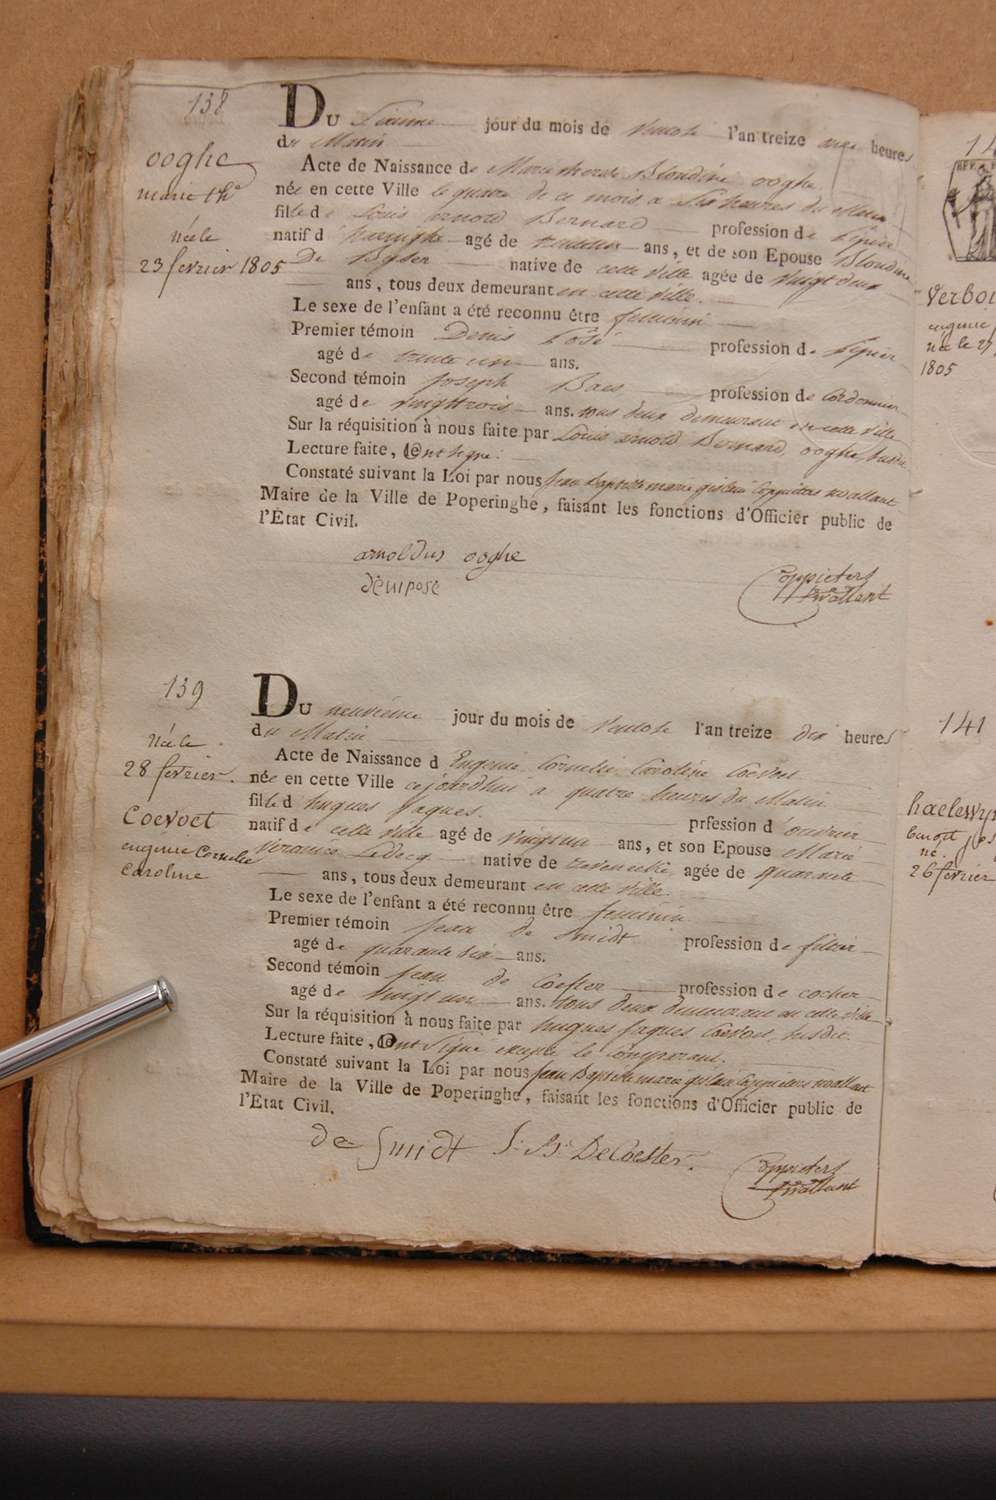 138
Du Sixieme jour du mois de Ventose l'an treize onze heures
du Matin
ooghe
marie th.e
née le
23 fevrier 1805
Acte de Naissance de Marie therese Blondine ooghe
née en cette Ville le quatre de ce mois a Six heures du Matin
fille de Louis arnold Bernard profession de
natif d' haringhe agé de ans, et de son Epouse Blondine
De native de cette ville agée de vingt deux
ans, tous deux demeurant en cette ville.
Le sexe de l'enfant a été reconnu être feminin
Premier témoin Denis profession de
agé de trente un ans.
Second témoin Joseph Baes profession de cordonnier
agé de vingttrois ans. tous deux demeurant en cette ville
Sur la réquisition à nous faite par Louis arnold Bernard ooghe susdit
Lecture faite, ont signé.
Constaté suivant la Loi par nous Jean Baptiste marie gislain Coppieters wallant
Maire de la Ville de Poperinghe, faisant les fonctions d'Officier public de
l'État Civil.
arnoldus ooghe
Coppieters
wallant
139
Du neuvieme jour du mois de Ventose l'an treize dix heures
du Matin
née le
28 fevrier.
Coevoet
eugénie Cornelie
Caroline
Acte de Naissance d Eugenie Cornelie Caroline Coevoet
née en cette Ville cejourdhui a quatre heures du Matin
fille d hugues Jaques. prfession d'ouvrier
natif de cette ville agé de ans, et son Epouse Marie
Veronice Ledecq native de agée de quarante
ans, tous deux demeurant en cette ville.
Le sexe de l'enfant a été reconnu être feminin
Premier témoin Jean de Smidt profession de
agé de quarante six ans.
Second témoin Jean de Coester profession de cocher
agé de vingt un ans. tous deux demeurant en cette ville
Sur la réquisition à nous faite par hugues Jaques Coevoet susdit
Lecture faite, ont Signé excepté le Comparant.
Constaté suivant la Loi par nous Jean Baptiste marie gislain Coppieters wallant
Maire de la Ville de Poperinghe, faisant les fonctions d'Officier public de
l'État Civil.
de Smidt J: B: DeCoester
Coppieters
wallant
14
Verbo
eugénie
née le 27
1805
141
haelewyn
benoit jos
né
26 fevrier